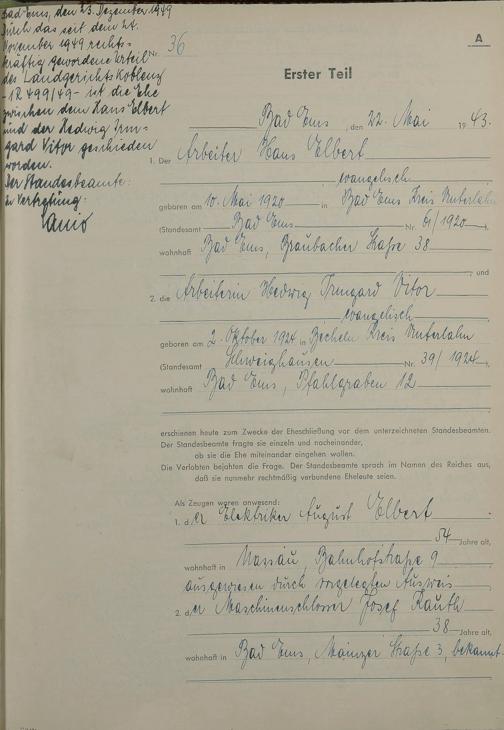 Bad Ems, den 23. Dezember 1949
Durch das seit dem 24.
November 1949 rechts-
kräftig gewordene Urteil
des Landgerichts Koblenz
- 1R 499/49 - ist die Ehe
zwischen dem Hans Elbert
und der Hedwig Irm-
gard Vitor geschieden
worden.
Der Standesbeamte:
in Vertretung:
A
Nr. 36
Erster Teil
Bad Ems, den 22. Mai 1943.
1. Der Arbeiter Hans Elbert
evangelisch
geboren am 10. Mai 1920 in Bad Ems Kreis Unterlahn
(Standesamt Bad Ems Nr. 61/1920),
wohnhaft Bad Ems, Braubacher Straße 38
, und
2. die Arbeiterin Hedwig Irmgard Vitor
evangelisch
geboren am 2. Oktober 1924 in Becheln Kreis Unterlahn
(Standesamt Schweighausen Nr. 39/1924),
wohnhaft Bad Ems, Pfahlgraben 12
erschienen heute zum Zwecke der Eheschließung vor dem unterzeichneten Standesbeamten.
Der Standesbeamte fragte sie einzeln und nacheinander,
ob sie die Ehe miteinander eingehen wollen.
Die Verlobten bejahten die Frage. Der Standesbeamte sprach im Namen des Reiches aus,
daß sie nunmehr rechtmäßig verbundene Eheleute seien.
Als Zeugen waren anwesend:
1. der Elektriker August Elbert
54 Jahre alt,
wohnhaft in Nassau, Bahnhofstraße 9
ausgewiesen durch vorgelegten Ausweis
2. der Maschinenschlosser Josef Kauth
38 Jahre alt,
wohnhaft in Bad Ems, Mainzer Straße 3, bekannt.